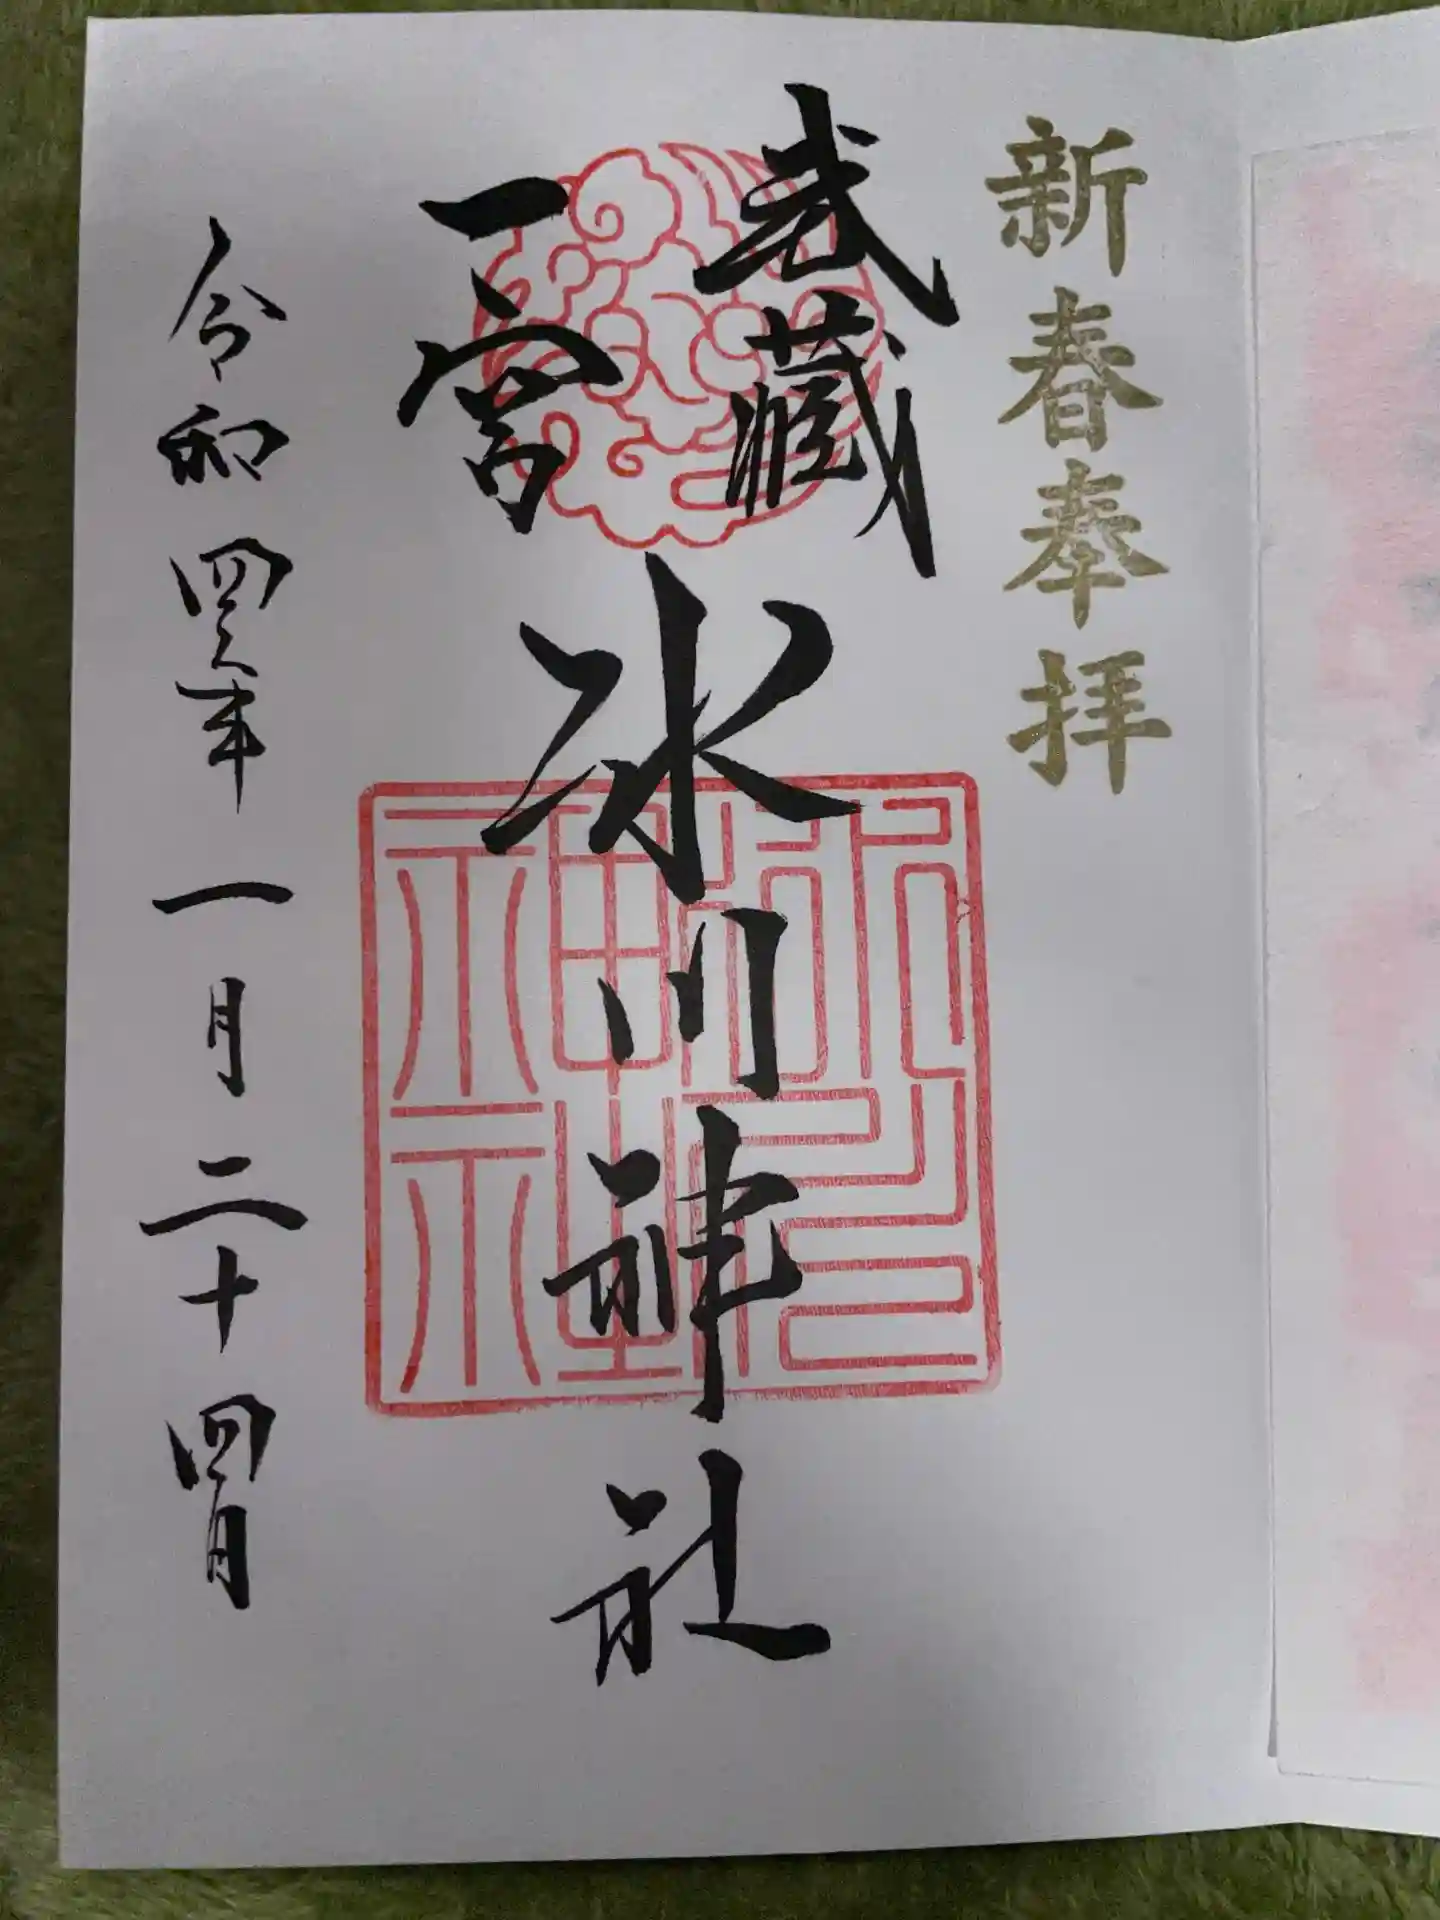 新春奉拝
武蔵
一宮
氷川神社
令和四年一月二十四日